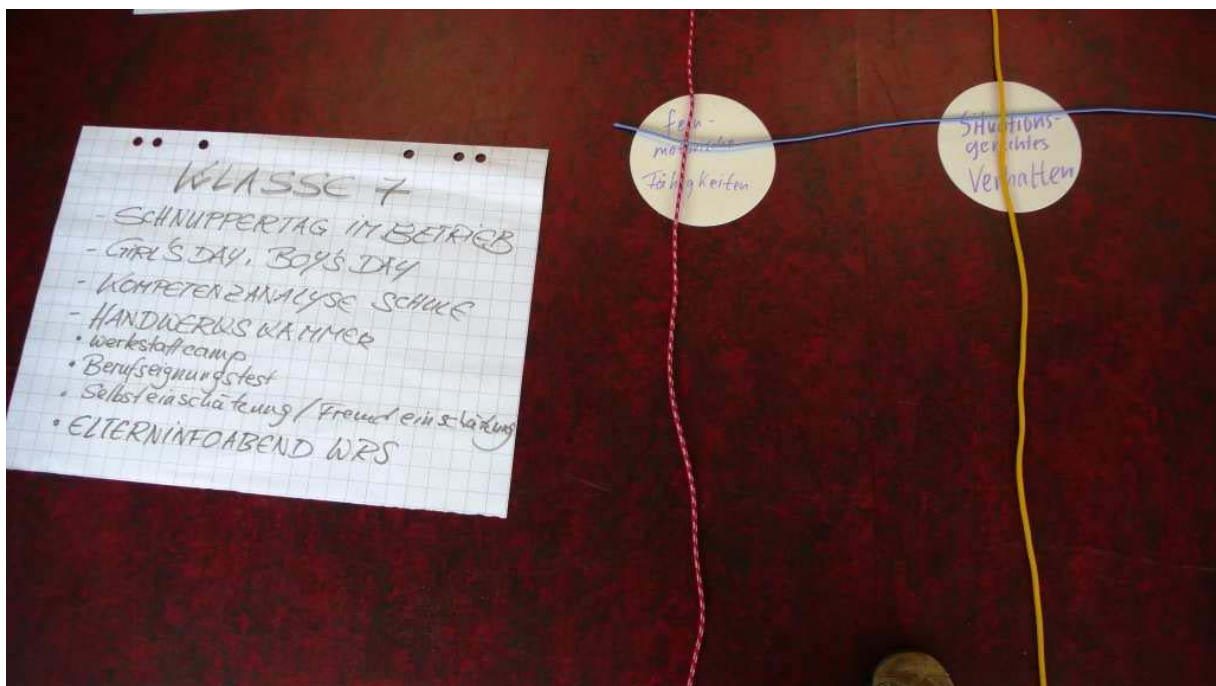 KLASSE 7
- SCHNUPPERTAG IM BETRIEB
- GIRL'S DAY, BOY'S DAY
- KOMPETENZANALYSE SCHULE
- HANDWERKSKAMMER
• Werkstattcamp
• Berufseignungstest
• Selbsteinschätzung / Fremdeinschätzung
• ELTERNINFOABEND WRS
fein-
motorische
Fähigkeiten
Situations-
gerechtes
Verhalten